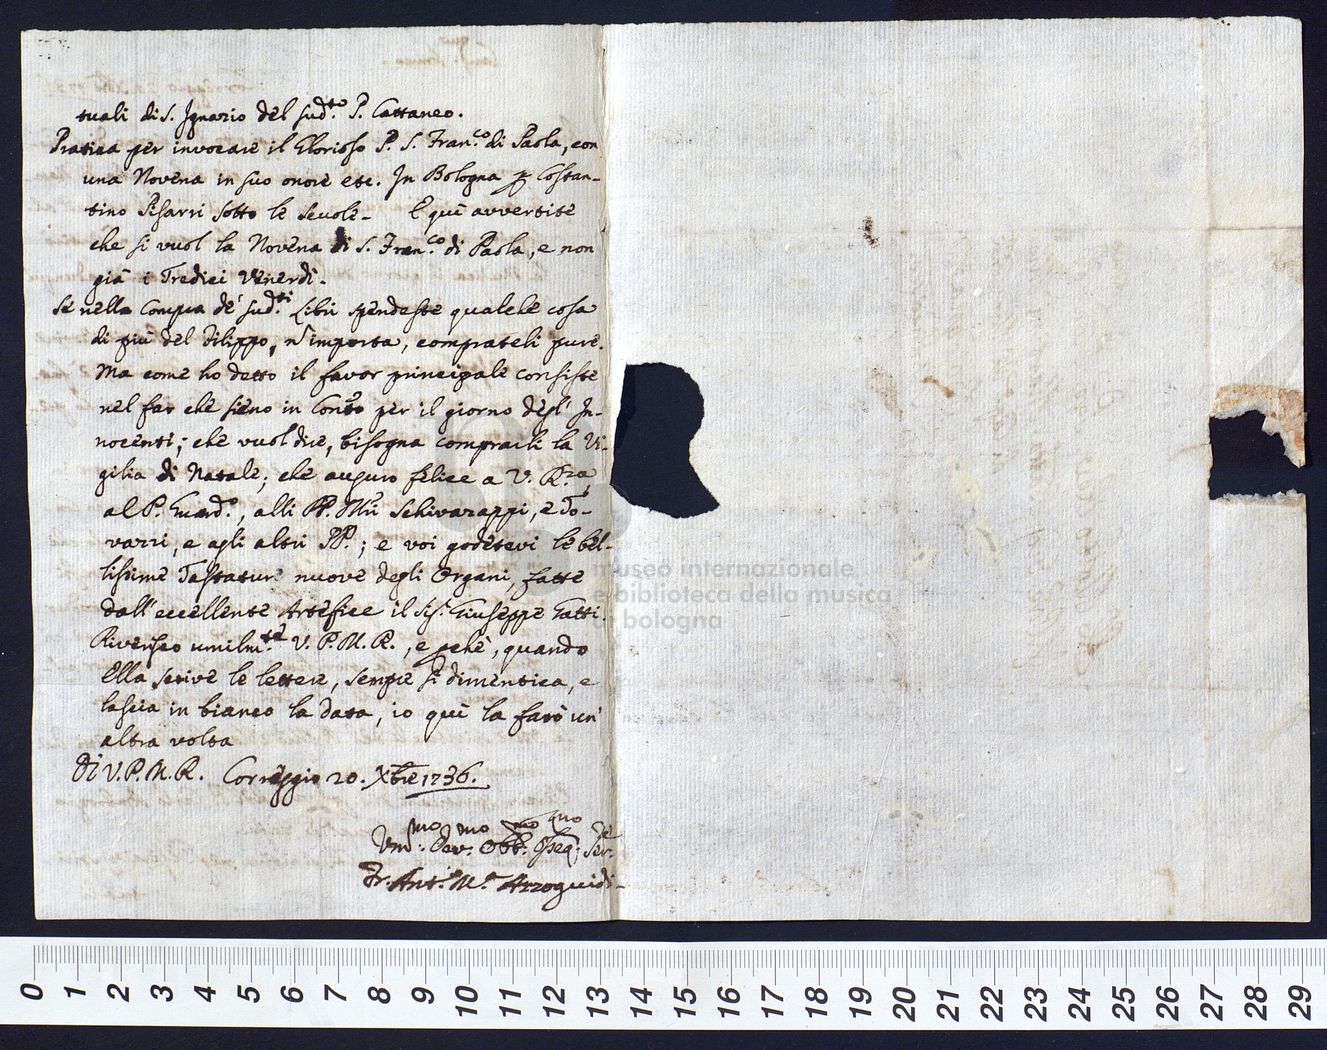 tuali di S. Ignazio del sud.to P. Cattaneo.
Pratica per invocare il Glorioso P. S. Fran.co di Paola, con
una Novena in suo onore etc. In Bologna p Costan-
tino Pisarri sotto le Scuole. E quì avvertite
che si vuol la Novena di S. Fran.co di Paola, e non
già i Tredici Venerdì.
Se nella Compra de' sud.ti Libri spendeste qualche cosa
di più del Filippo, n'importa, comprateli pure.
Ma come ho detto il favor principale consiste
nel far che sieno in Conto per il giorno degl' In-
nocenti; che vuol dire, bisogna comprarli la Vi-
gilia di Natale; che auguro felice a V. R.za
al P. Guard.o, alli PP. Mri Schivarappi, e To-
varri, e agli altri PP.; e voi godetevi le bel-
lissime Tastature nuove degli Organi, fatte
dall' eccellente Artefice il Sig. Giuseppe Gatti.
Riverisco umilm.te V. P. M. R., e pchè, quando
Ella scrive le lettere, sempre si dimentica, e
lascia in bianco la data, io quì la farò un'
altra volta
Di V. P. M. R. Correggio 20. Xbre 1736.
Um.mo Dev.mo Obb.mo Osseq.mo Ser.
Fr. Ant.o M.a Arzoguidi
museo internazionale
e biblioteca della musica
di bologna
0 1 2 3 4 5 6 7 8 9 10 11 12 13 14 15 16 17 18 19 20 21 22 23 24 25 26 27 28 29